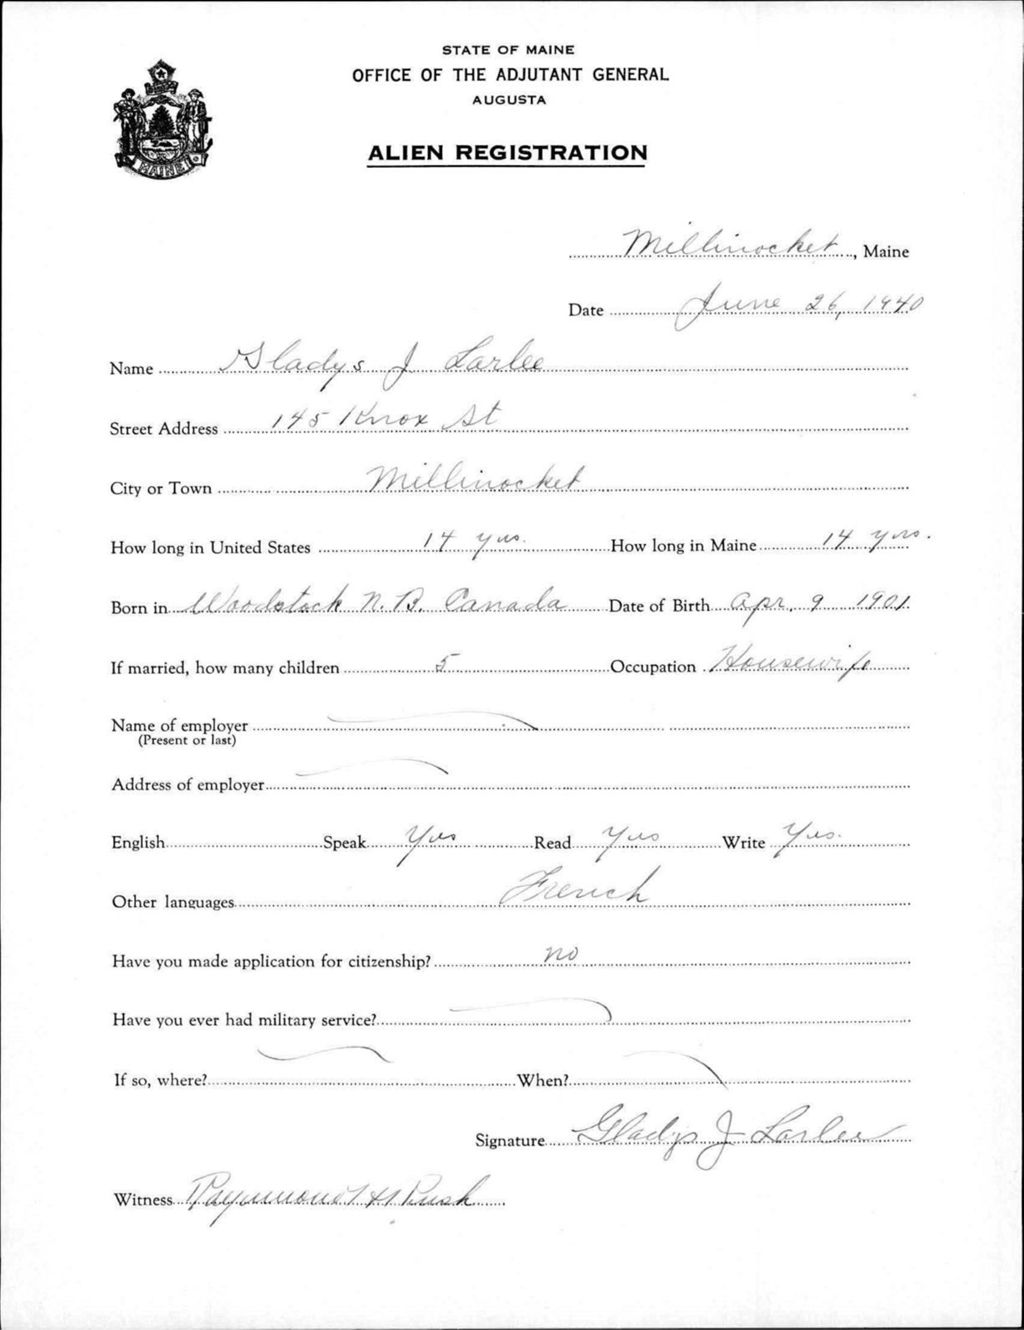 STATE OF MAINE
OFFICE OF THE ADJUTANT GENERAL
AUGUSTA
ALIEN REGISTRATION
MAINE
Millinocket, Maine
Date June 26, 1940
Name Gladys J Larlee
Street Address 145 Knox St
City or Town Millinocket
How long in United States 14 yrs. How long in Maine 14 yrs.
Born in Woodstock N. B. Canada Date of Birth Apr. 9 1901.
If married, how many children 5 Occupation Housewife
Name of employer
(Present or last)
Address of employer
English Speak Yes Read Yes Write Yes.
Other languages French
Have you made application for citizenship? no
Have you ever had military service?
If so, where? When?
Signature Gladys J Larlee
Witness Raymond H Rush